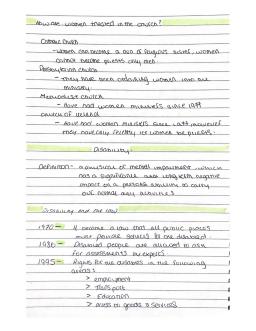 How are women treated in the church?
Catholic Church
- Women can become a nun or religious sister, women cannot become priests only men
Presbyterian church
- They have been ordaining women into the ministry
Methodist church
- Have had women ministers since 19
Church of Ireland
- Have had women ministers since however they have only recently let women be priests.
Disability
Definition - a physical or mental impairment which has a significant and long term negative impact on a persons ability to carry out normal day activities
Disability and the law
1970 - It became a law that all public places must provide services to the disabled
1986 - Disabled people are allowed to ask for assessments by experts
1995 - Rights for the disabled in the following areas:
> employment
> Transport
> Education
> access to goods & services